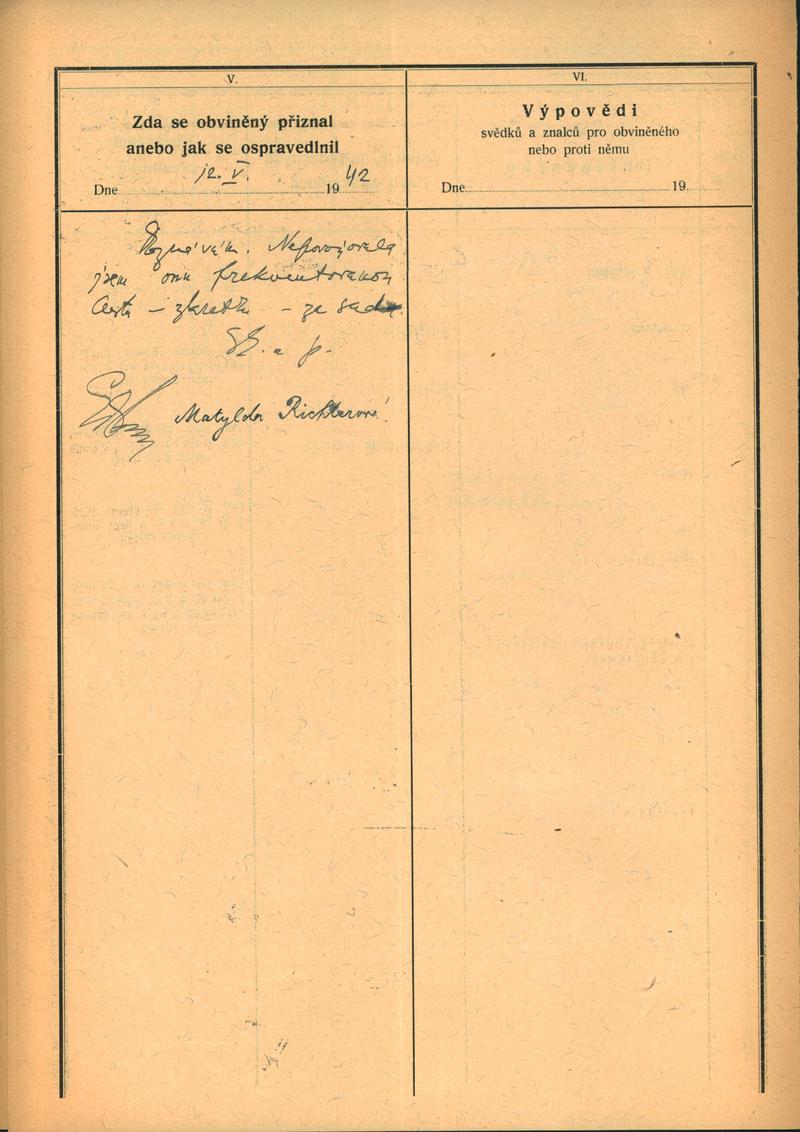 V.
Zda se obviněný přiznal
anebo jak se ospravedlnil
Dne 12. V. 1942
Nepovažovala
jsem onu frekventovanou
cestu – zkratku – ze sadu.
Matylda Richterová
VI.
Výpovědi
svědků a znalců pro obviněného
nebo proti němu
Dne 19